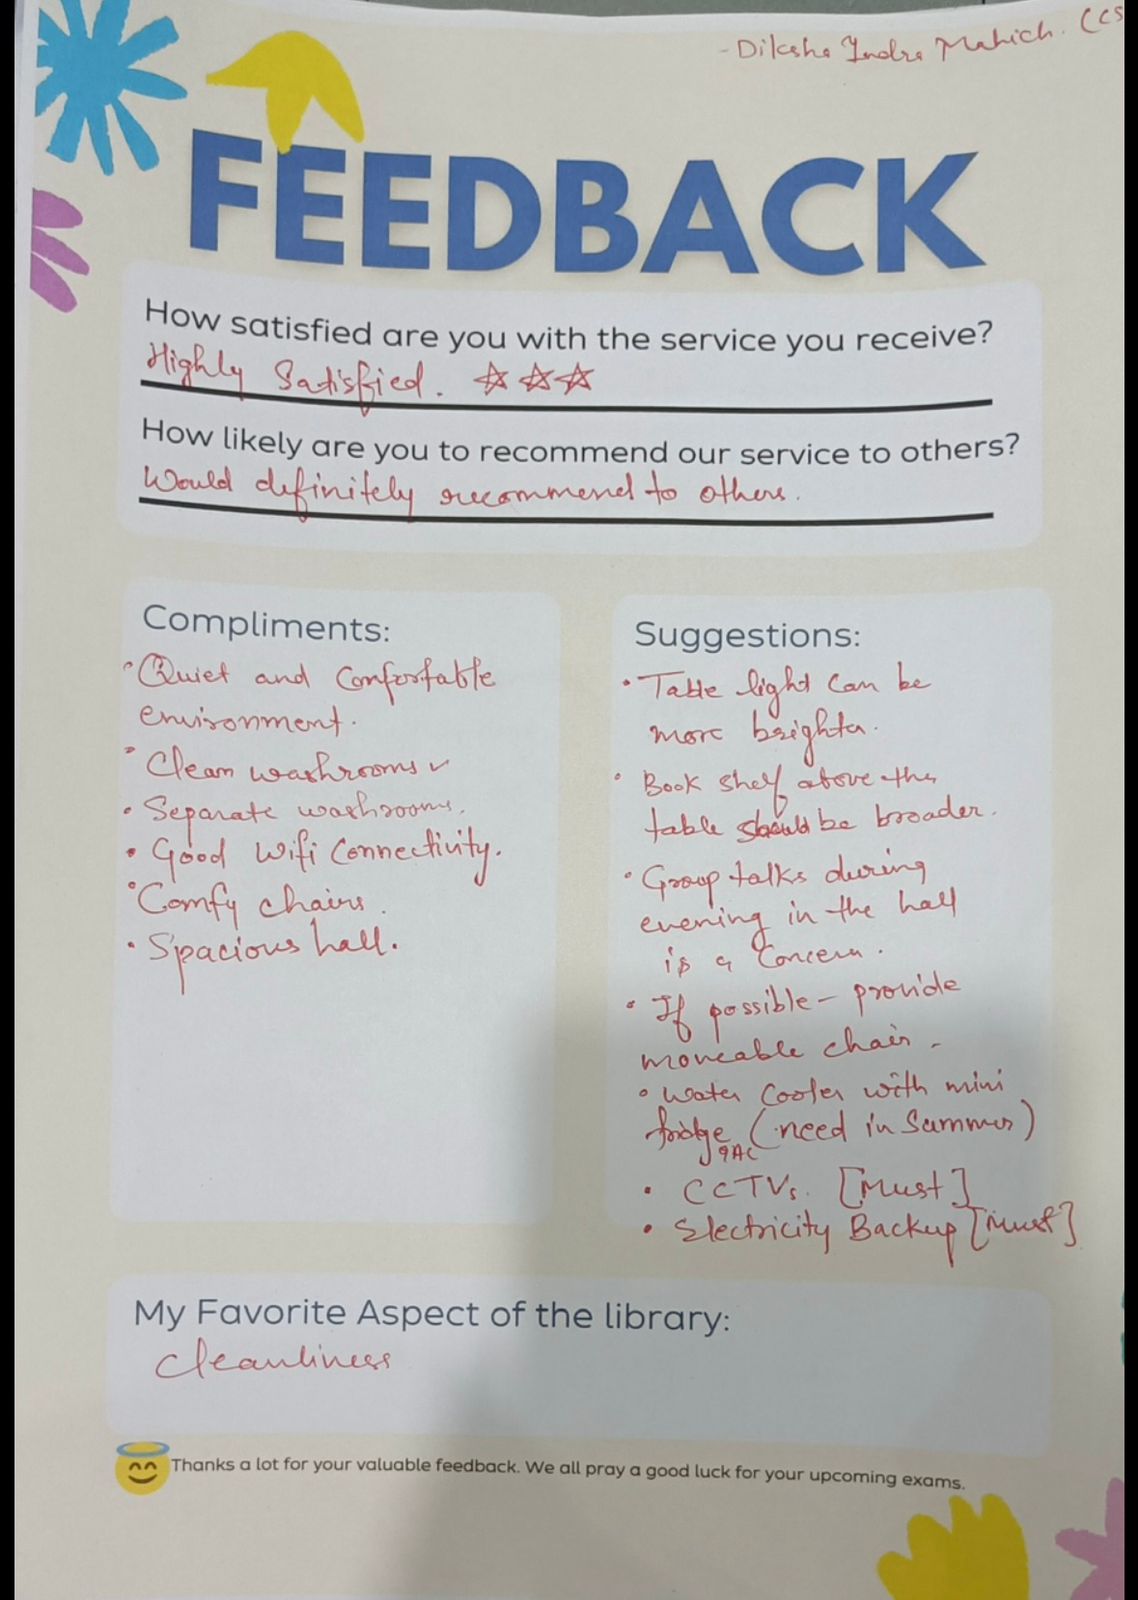 - Diksha Indra Mahich. (CS
FEEDBACK
How satisfied are you with the service you receive?
Highly Satisfied. ☆☆☆
How likely are you to recommend our service to others?
Would definitely recommend to others.
Compliments:
• Quiet and Comfortable
environment.
• Clean washrooms ✓
• Separate washrooms.
• Good Wifi Connectivity.
• Comfy chairs.
• Spacious hall.
Suggestions:
• Table light can be
more brighter.
• Book shelf above the
table should be broader.
• Group talks during
evening in the hall
is a Concern.
• If possible - provide
moveable chair.
• Water Cooler with mini
fridge (need in Summer)
AC
• CCTVs. [Must]
• Electricity Backup [Must]
My Favorite Aspect of the library:
Cleanliness
Thanks a lot for your valuable feedback. We all pray a good luck for your upcoming exams.